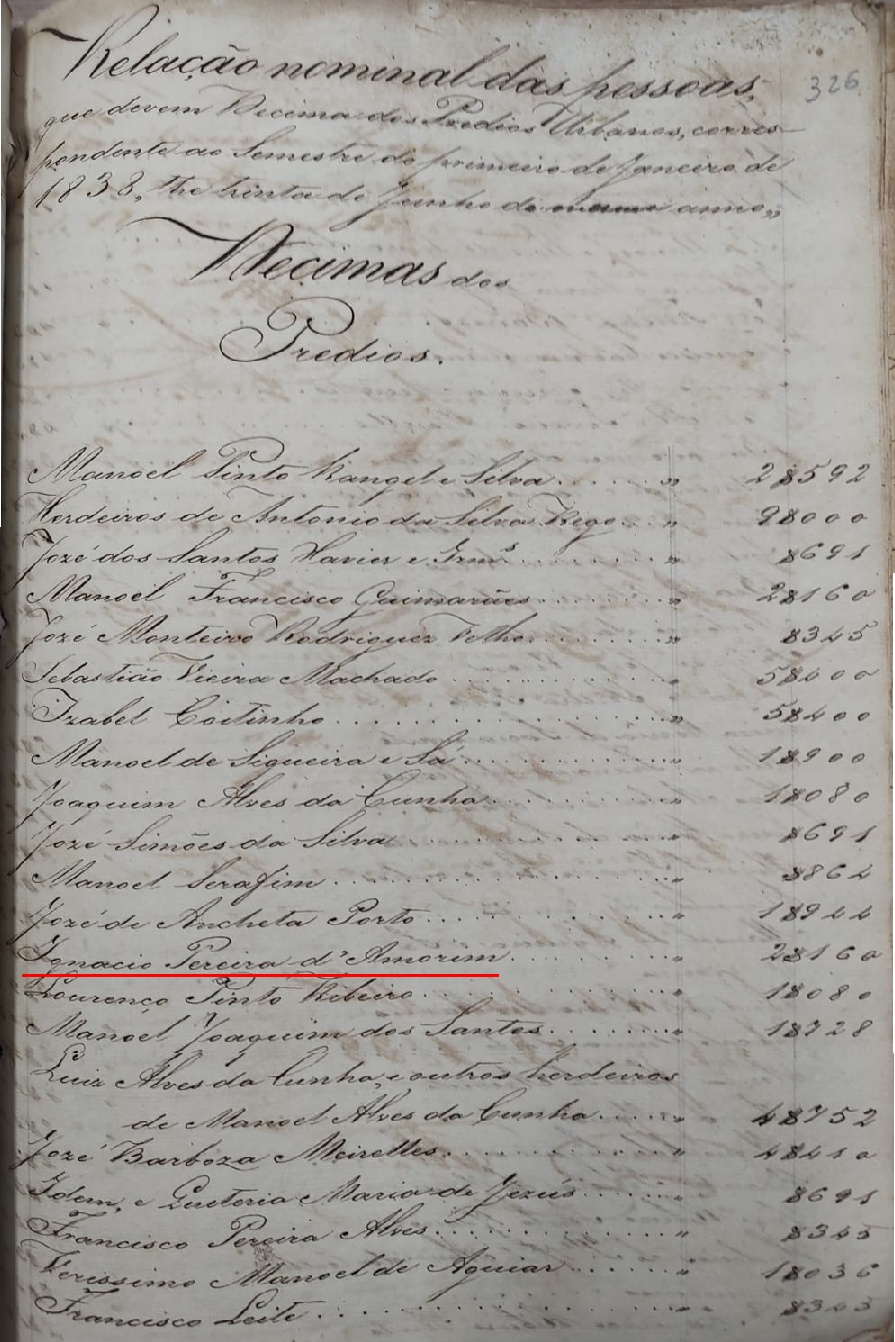 326
Relação nominal das pessoas,
que devem Decima dos Predios Urbanos, corres-
pondente ao Semestre do primeiro de Janeiro de
1838, the trinta de Junho do mesmo anno,,
Decimas dos
Predios.
Manoel Pinto Rangel e Silva . . . . . . " 2$592
Herdeiros de Antonio da Silva Rego . . " 9$000
Jozé dos Santos Xavier e Irms . . . . . . " $691
Manoel Francisco Guimarães . . . . . . " 2$160
Jozé Monteiro Rodriguez Velho . . . . . . " $345
Sebastião Vieira Machado . . . . . . " 5$400
Izabel Coitinho . . . . . . " 5$400
Manoel de Siqueira e Sá . . . . . . " 1$900
Joaquim Alves da Cunha . . . . . . " 1$080
Jozé Simões da Silva . . . . . . " $691
Manoel Serafim . . . . . . " $864
Jozé de Ancheta Porto . . . . . . " 1$944
Ignacio Pereira d'Amorim . . . . . . " 2$160
Lourenço Pinto Ribeiro . . . . . . " 1$080
Manoel Joaquim dos Santos . . . . . . " 1$728
Luiz Alves da Cunha, e outros herdeiros
de Manoel Alves da Cunha . . . . " 4$752
Jozé Barboza Meirelles . . . . . . "
Idem, e Quiteria Maria de Jezús . . . . . . " $691
Francisco Pereira Alves . . . . . . " $345
Verissimo Manoel de Aguiar . . . . . . " 1$036
Francisco Leite . . . . . . "